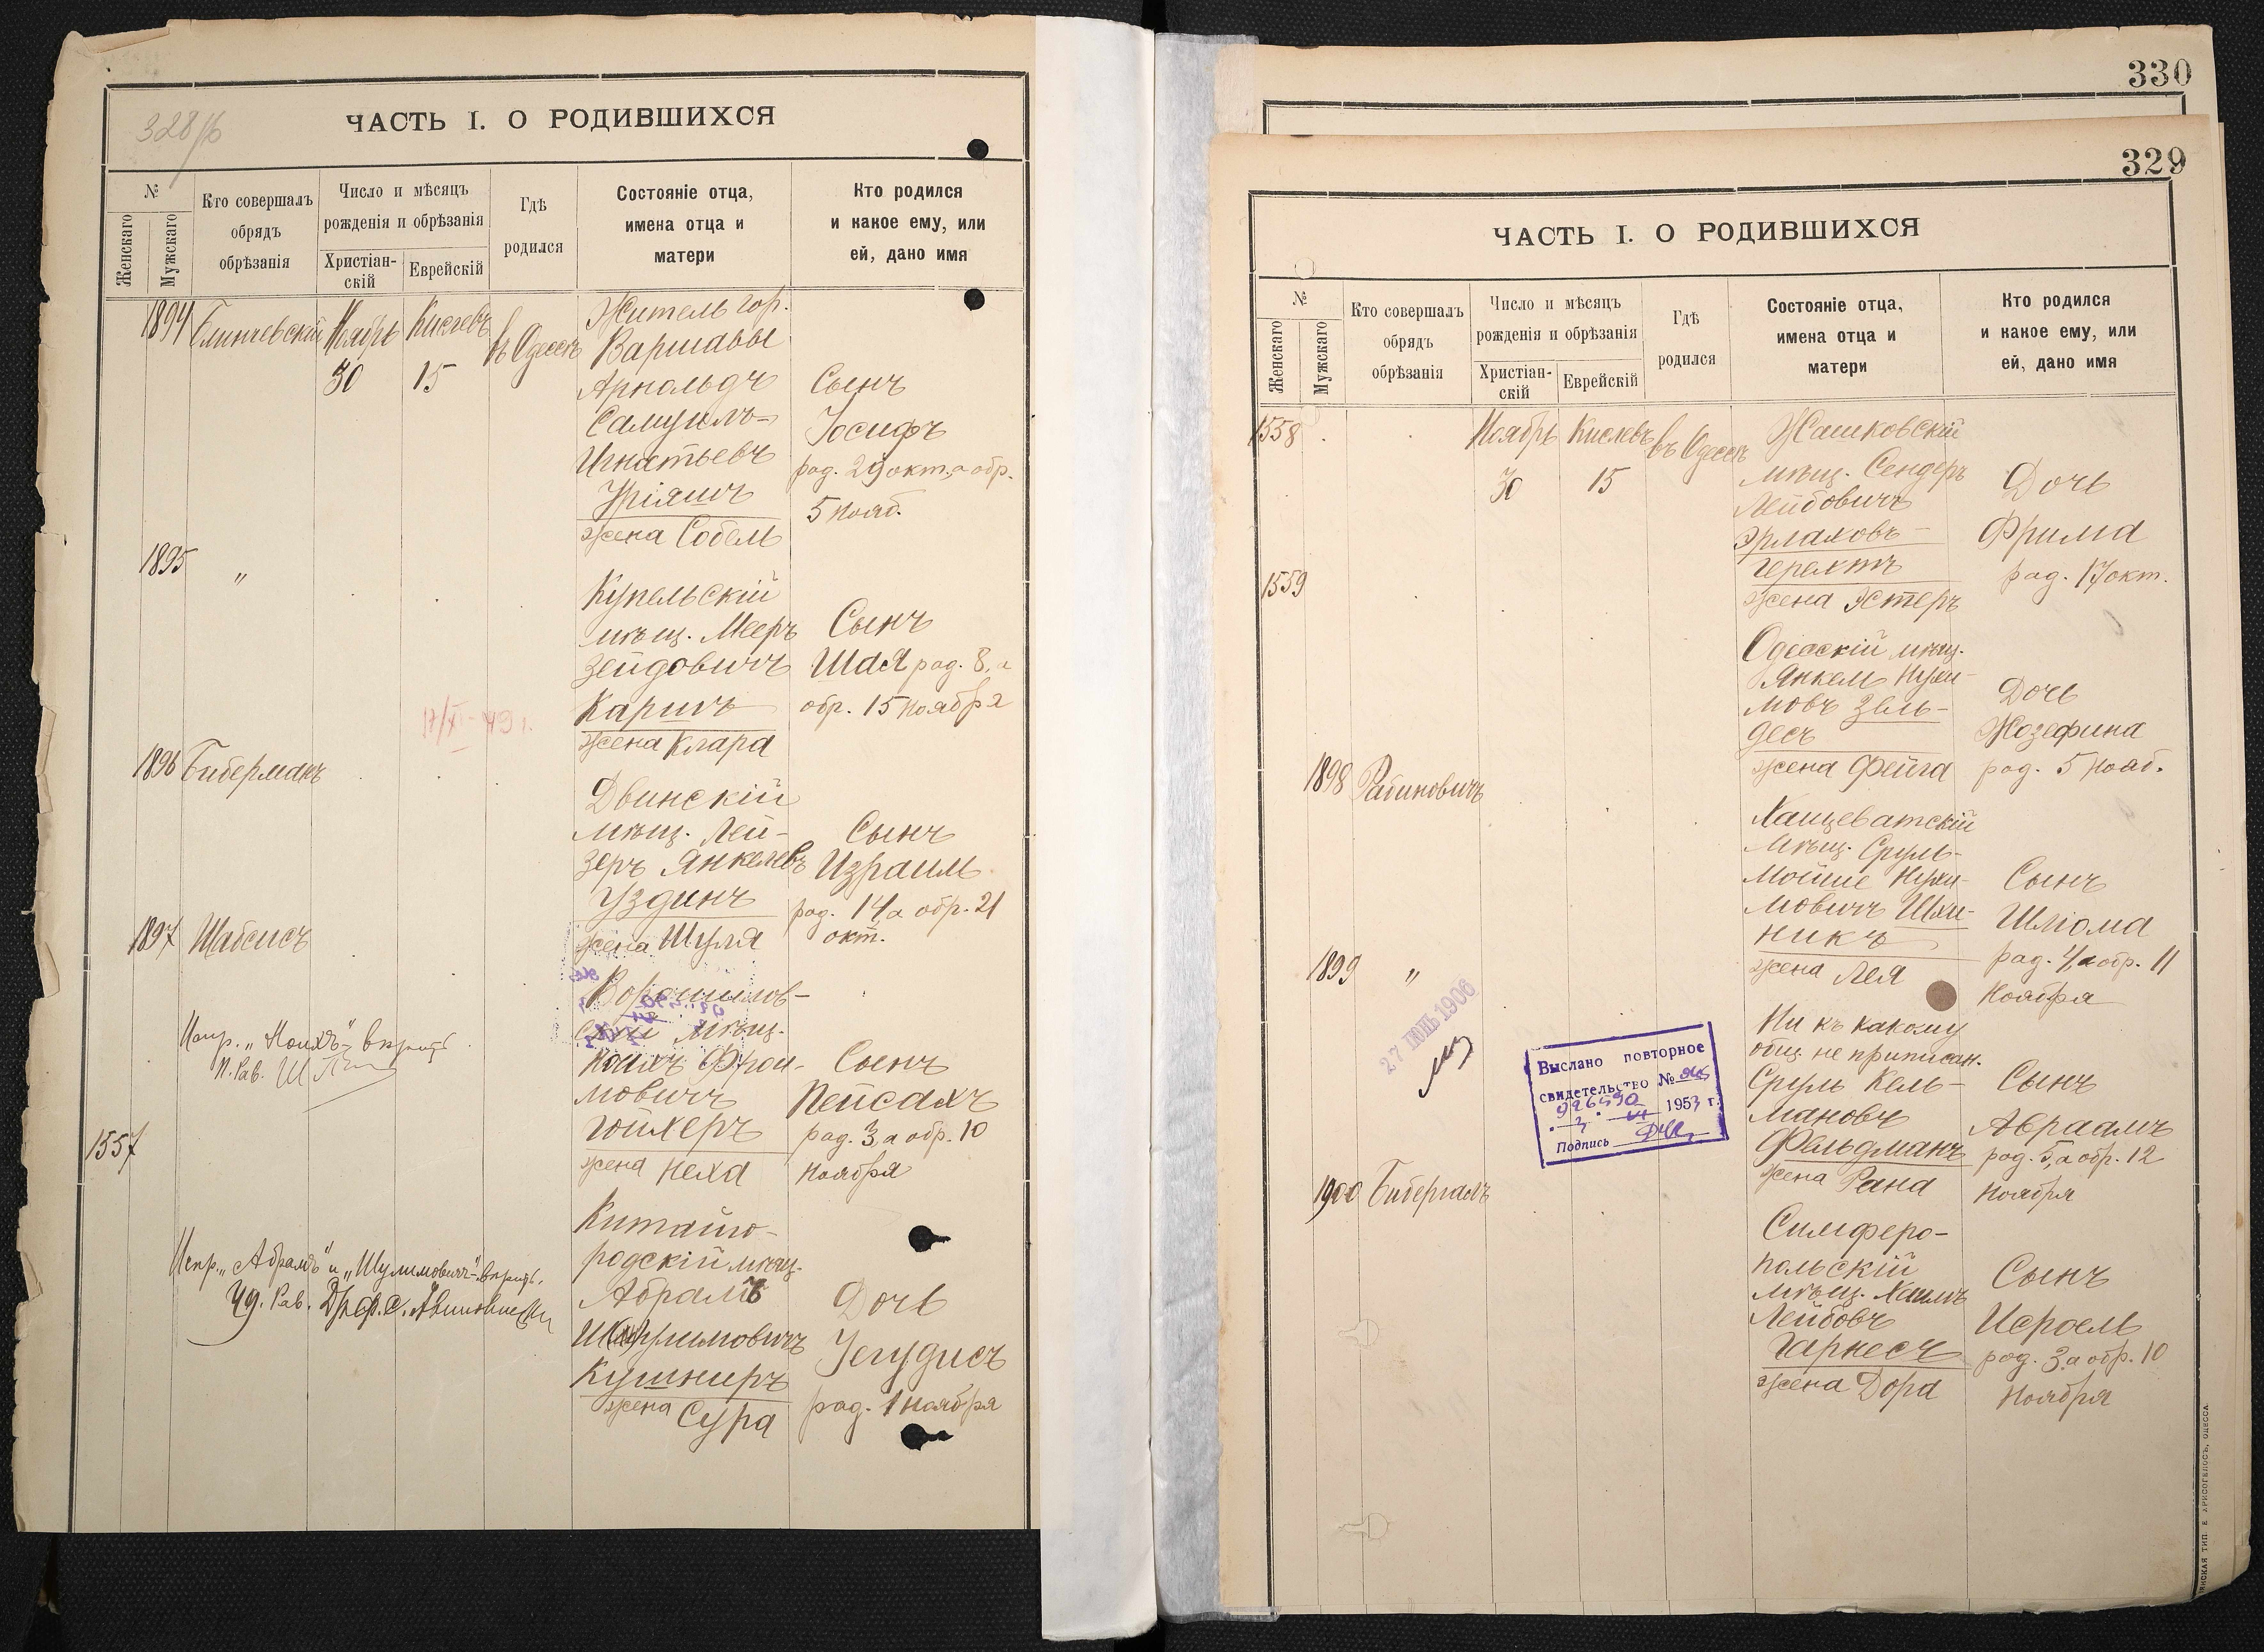 328/б
ЧАСТЬ I. О РОДИВШИХСЯ
№
Женскаго
Мужскаго
Кто совершалъ
обрядъ
обрѣзанія
Число и мѣсяцъ
рожденія и обрѣзанія
Христіан-
скій
Еврейскій
Гдѣ
родился
Состояніе отца,
имена отца и
матери
Кто родился
и какое ему, или
ей, дано имя
1894
Ноябрь
Кислевъ
30
15
въ Одессѣ
Житель гор.
Варшавы
Арнольдъ
Самуилъ-
Игнатьевъ
Уріяшъ
жена Собель
Сынъ
Іосифъ
род. 29 окт., а обр.
5 нояб.
1895
"
Купельскій
мѣщ. Мееръ
Зейдовичъ
Каришъ
жена Клара
Сынъ
Шая род. 8, а
обр. 15 ноября
1896
Биберманъ
Двинскій
мѣщ. Лей-
зеръ Янкелевъ
Уздинъ
жена Шуля
Сынъ
Израиль
род. 14 а обр. 21
окт.
1897
Шабсисъ
Ворошилов-
скій мѣщ.
Ноихъ Фрои-
мовичъ
Гойхеръ
жена Неха
Сынъ
Пейсахъ
род. 3, а обр. 10
ноября
Испр. „Ноихъ"
1557
Китайго-
родскій мѣщ.
Абрамъ
Шулимовичъ
Кушниръ
жена Сура
Дочь
Іегудисъ
род. 1 ноября
Испр. „Абрамъ" и „Шулимовичъ"
330
329
ЧАСТЬ I. О РОДИВШИХСЯ
№
Женскаго
Мужскаго
Кто совершалъ
обрядъ
обрѣзанія
Число и мѣсяцъ
рожденія и обрѣзанія
Христіан-
скій
Еврейскій
Гдѣ
родился
Состояніе отца,
имена отца и
матери
Кто родился
и какое ему, или
ей, дано имя
1558
Ноябрь
Кислевъ
30
15
въ Одессѣ
Жашковскій
мѣщ. Сендеръ
Лейбовичъ
Эрлаховъ-
Герехтъ
жена Эстеръ
Дочь
Фрима
род. 17 окт.
1559
Одесскій мѣщ.
Янкель Нухи-
мовъ Зель-
десъ
жена Фейга
Дочь
Жозефина
род. 5 нояб.
1898
Рабиновичъ
Хащеватскій
мѣщ. Сруль-
Мойше Нухи-
мовичъ Шхи-
никъ
жена Лея
Сынъ
Шліома
род. 4, а обр. 11
ноября
1899
"
Ни къ какому
общ. не приписан.
Сруль Кель-
мановъ
Фельдманъ
жена Рана
Сынъ
Авраамъ
род. 5, а обр. 12
ноября
27 ІЮНЬ 1906
Выслано повторное
свидетельство №
926590
1953 г.
Подпись
1900
Бибергалъ
Симферо-
польскій
мѣщ. Хаимъ
Лейбовъ
Гарнесъ
жена Дора
Сынъ
Исроель
род. 3, а обр. 10
ноября